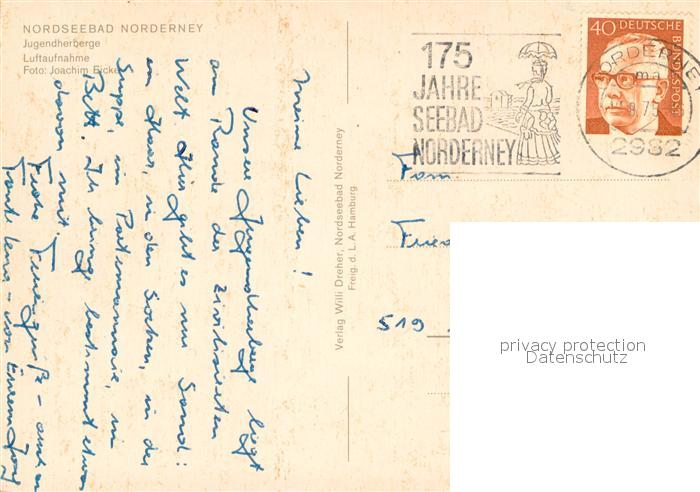 NORDSEEBAD NORDERNEY
Jugendherberge
Luftaufnahme
Foto: Joachim Eicke
Meine Lieben!
Unsere Jugendherberge liegt
am Rande der zivilisierten
Welt. Hier gibt es nur Sand:
im Haar, in den Socken, in der
Suppe, im Portemonnaie, im
Bett. Ich bringe bestimmt etwas
davon mit.
Frohe Feriengrüße - auch an
Tante Lena - von Eurem
Verlag Willi Dreher, Nordseebad Norderney
Freig. d. L.A. Hamburg
175
JAHRE
SEEBAD
NORDERNEY
40 DEUTSCHE
BUNDESPOST
NORDERNEY
2982
Fam.
519
privacy protection
Datenschutz